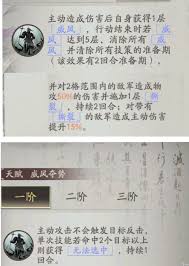 主动造成伤害后自身获得1层
「威风」，行动结束时若「威
风」达到5层，消除所有「威风」
并清除所有技策的准备期
（该效果有2回合准备期）。
并对2格范围内的敌军造成物
攻50%的伤害并施加1层「撕
裂」，持续2回合；对带有
「撕裂」的敌军造成主动伤害
提升15%。
天赋 威风夺势
一阶 二阶 三阶
主动攻击不会触发目标反击，
单次技能若命中2个目标以上
则获得「无法选中」，持续1
回合。